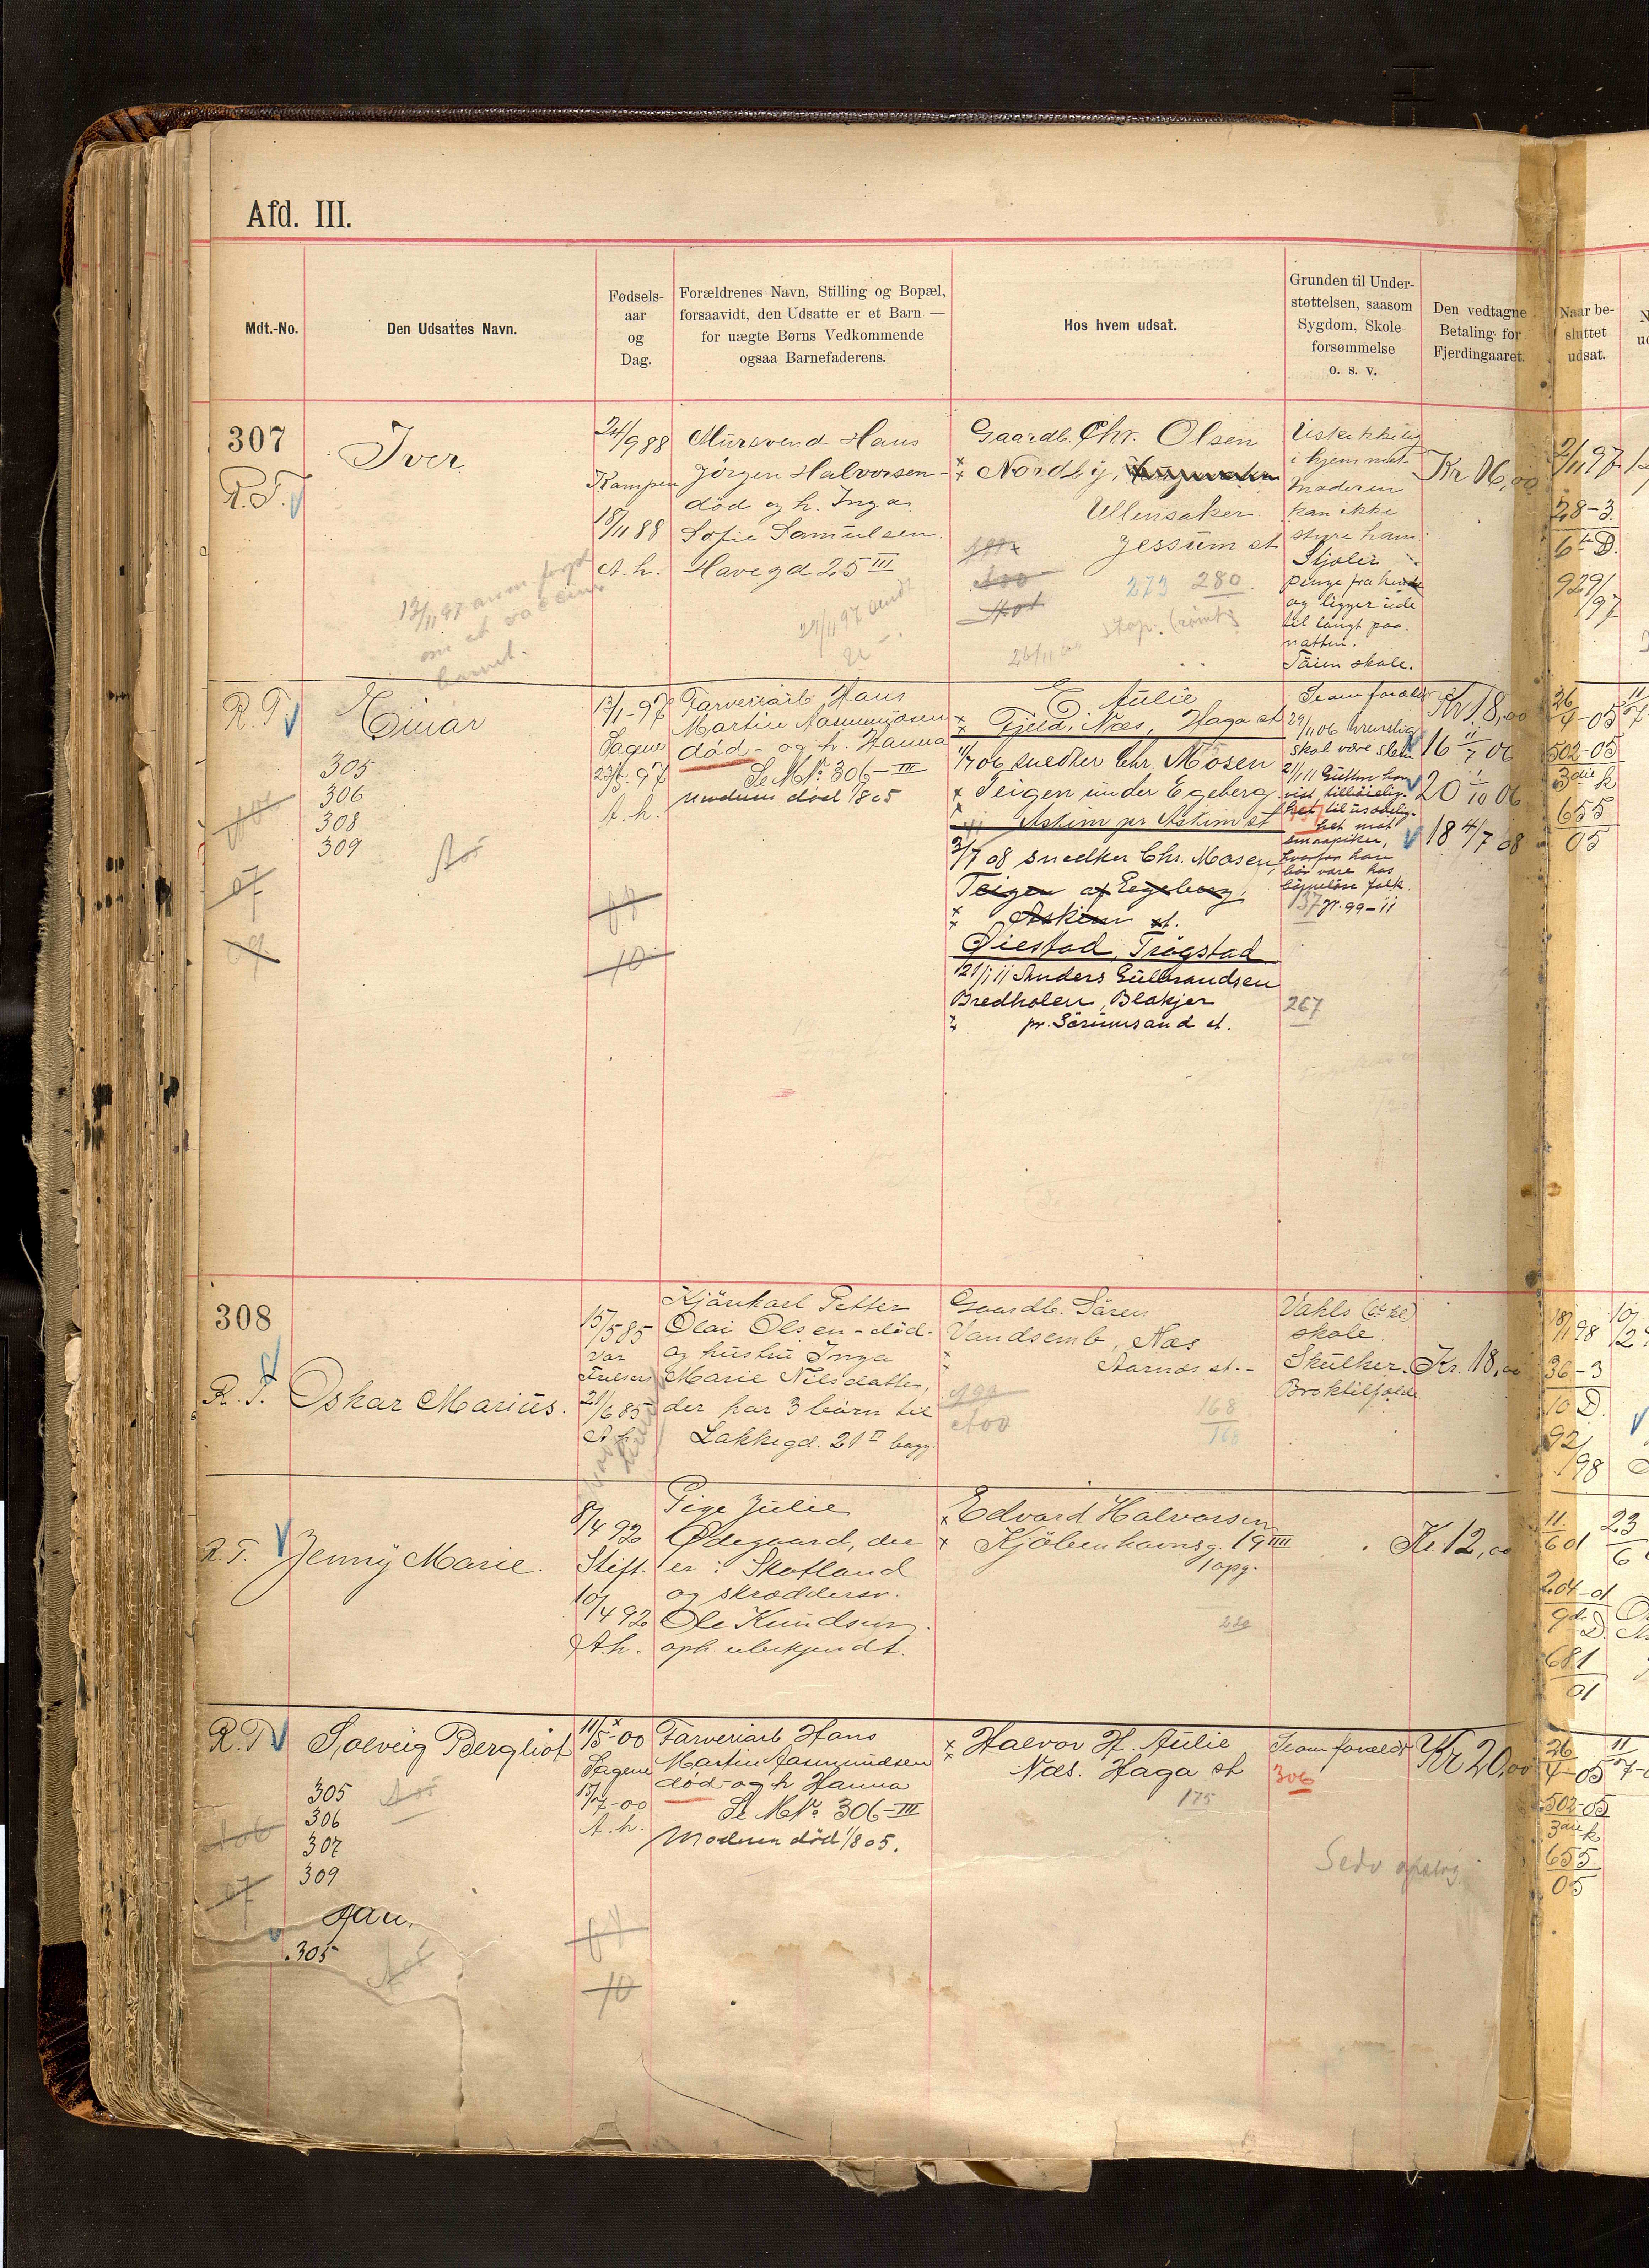 Afd. III.
Mdt.-No.
Den Udsattes Navn.
Fødsels-
aar
og
Dag.
Forældrenes Navn, Stilling og Bopæl,
forsaavidt, den Udsatte er et Barn —
for uægte Børns Vedkommende
ogsaa Barnefaderens.
Hos hvem udsat.
Grunden til Under-
støttelsen, saasom
Sygdom, Skole-
forsømmelse
o. s. v.
Den vedtagne
Betaling for
Fjerdingaaret.
Naar be-
sluttet
udsat.
307
R. T.
Iver
24/9 88
Kampen
18/11 88
A. h.
Mursvend Hans
Jörgen Halvorsen -
död og h. Inga
Sofie Samuelsen.
Havegd 25 III
Gaardb. Chr. Olsen
Nordby,
Ullensaker
Jessum st
273 280.
Uskikkelig
i hjemmet
Moderen
kan ikke
styre ham.
Stjæler
penge fra hende
og ligger ude
til langt paa
natten.
Töien skole.
Kr 16,00
2/11 97
28-3
6te D.
929/97
R. T.
Einar
305
306
308
309
07
13/1-97
Sagene
23/5-97
A. h.
Farveriarb. Hans
Martin Aasmundsen
död - og h. Hanna
Se M No. 306-III
Moderen död 1/8 05
E Aulie
Fjeld, Næs, Haga st
1/7 06 snedker Chr. Mosen
Teigen under Egeberg
Askim pr Askim st
2/7 08 snedker Chr. Mosen,
Teigen af Egeberg,
Askim st.
Öiestad, Trögstad
21/1 11 Anders Gulbrandsen
Bredholen, Blakjer
pr. Sörumsand st.
skal være slem
21/1 11 Gutten har
vist tilböielig-
het til usædelig-
het mot
smaapiker,
hvorfor han
bör være hos
barnlöse folk.
137 Jr. 99-11
267
Kr 18,00
16 11/7 06
20 1/10 06
18 4/7 08
26/4-05
502-05
3die k
655
05
07
10
308
R. T.
Oskar Marius.
15/5 85
Var
Frelsers
21/6 85
A. h.
Kjörekarl Petter
Olai Olsen - död -
og hustru Inga
Marie Nilsdatter,
der har 3 börn til
Lakkegd. 21 II bagg.
Gaardb. Sören
Vandsemb, Næs
Aarnæs st. -
168
Vahls
skole.
Skulker.
Kr. 18,00
18/1 98
36-3
10 D.
92/98
R. T.
Jenny Marie.
8/4 92
Stift.
10/4 92
A. h.
Pige Julie
Ödegaard, der
er i Skotland
og skræddersv.
Ole Knudsen
oph. ubekjendt.
Edvard Halvorsen
Kjöbenhavnsg. 19 III
1 opg.
Kr. 12,00
11/6 01
204-01
9de D.
681
01
R. T.
Solveig Bergliot
305
306
307
309
Jau.
305
07
11/5-00
Sagene
15/7-00
A. h.
Farveriarb Hans
Martin Aasmundsen
död - og h Hanna
Se M No. 306-III
Moderen död 1/8 05.
Halvor H. Aulie
Næs. Haga st
175
306
Kr 20,00
26/4-05
502-05
3die k
655
05
10